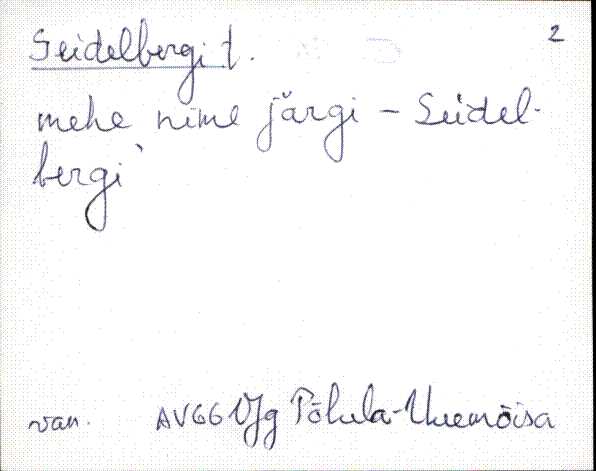 2
Seidelbergi t.
mehe nime järgi – Seidel-
bergi
van. AV66 VJg Põlula-Uuemõisa